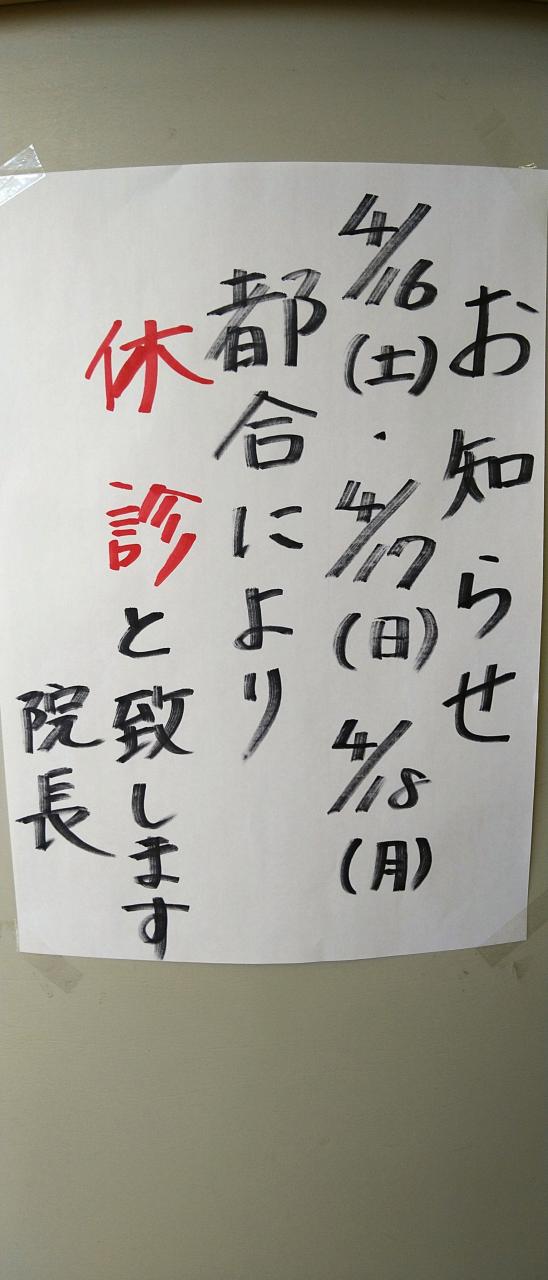 お知らせ
4/16(土)・4/17(日)4/18(月)
都合により
休診と致します
院長